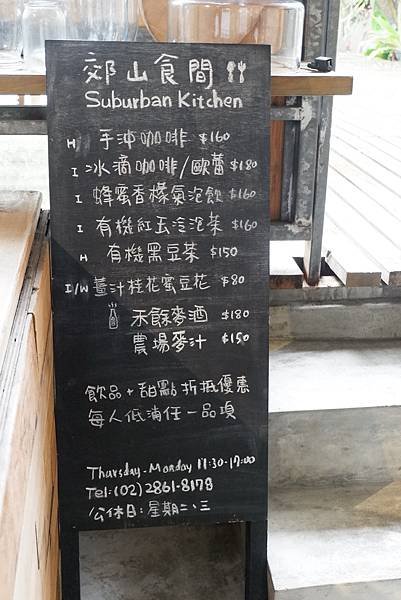 郊山食間
Suburban Kitchen
H 手沖咖啡 $160
I 冰滴咖啡/歐蕾 $180
I 蜂蜜香檬氣泡飲 $160
I 有機紅玉冷泡茶 $160
H 有機黑豆茶 $150
I/W 薑汁桂花蜜豆花 $80
禾餘麥酒 $180
農場麥汁 $150
飲品+甜點 折抵優惠
每人低消任一品項
Thursday-Monday 11:30-17:00
Tel:(02)2861-8178
公休日:星期二、三